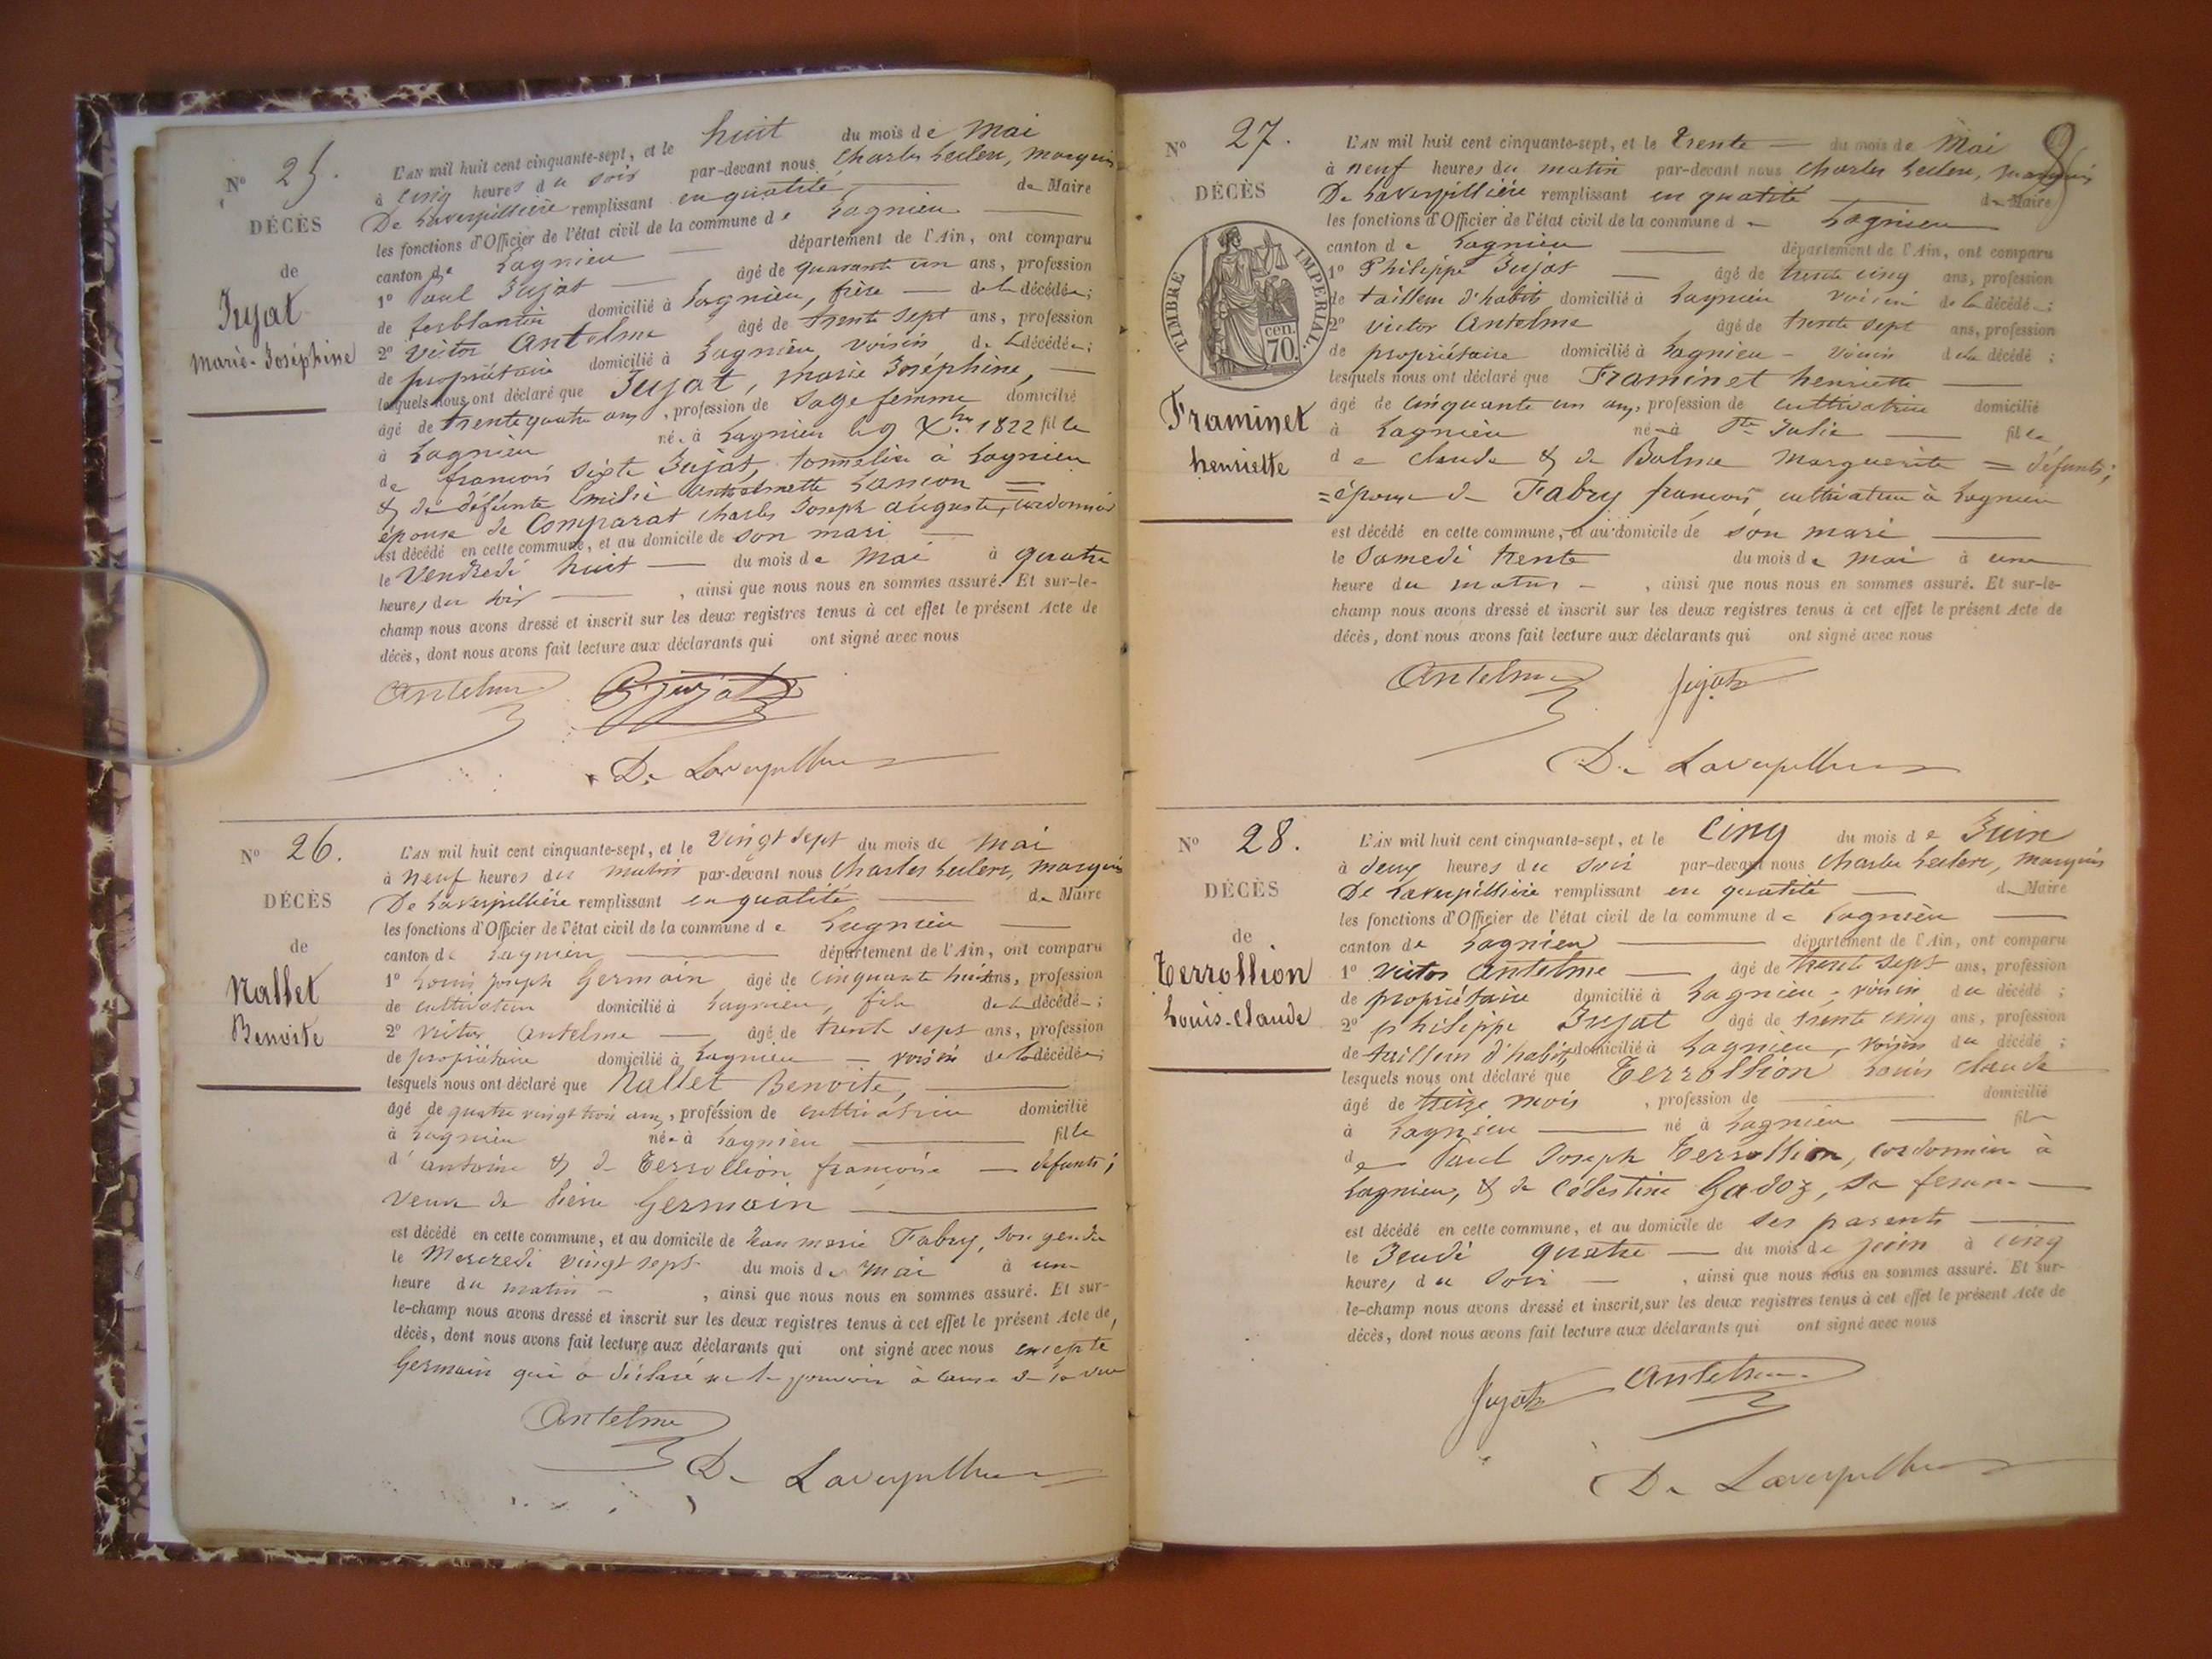 N° 25.
DÉCÈS
de
Jujat
Marie-Joséphine
L'AN mil huit cent cinquante-sept, et le huit du mois de Mai
à cinq heures du soir par-devant nous Charles Leclerc, Marquis
De Laverpillière remplissant en qualité de Maire
les fonctions d'Officier de l'état civil de la commune de Lagnieu
canton de Lagnieu département de l'Ain, ont comparu
1° Paul Jujat âgé de quarante un ans, profession
de ferblantier domicilié à Lagnieu, frère de la décédée;
2° Victor Antelme âgé de trente sept ans, profession
de propriétaire domicilié à Lagnieu, voisin de la décédée;
lesquels nous ont déclaré que Jujat, Marie Joséphine,
âgé de trente quatre ans, profession de sage femme domicilié
à Lagnieu née à Lagnieu le 9 Xbre 1822 fille
de françois sixte Jujat, tonnelier à Lagnieu
& de défunte Emilie Lançon =
épouse de Comparat Charles Joseph auguste, cordonnier
est décédé en cette commune, et au domicile de son mari
le Vendredi huit du mois de Mai à quatre
heures du soir, ainsi que nous nous en sommes assuré. Et sur-le-
champ nous avons dressé et inscrit sur les deux registres tenus à cet effet le présent Acte de
décès, dont nous avons fait lecture aux déclarants qui ont signé avec nous
Antelme Jujat
De Laverpillière
N° 26.
DÉCÈS
de
Nallet
Benoite
L'AN mil huit cent cinquante-sept, et le vingt sept du mois de Mai
à neuf heures du matin par-devant nous Charles Leclerc, Marquis
De Laverpillière remplissant en qualité de Maire
les fonctions d'Officier de l'état civil de la commune de Lagnieu
canton de Lagnieu département de l'Ain, ont comparu
1° Louis Joseph Germain âgé de cinquante huit ans, profession
de cultivateur domicilié à Lagnieu, fils de la décédée;
2° Victor Antelme âgé de trente sept ans, profession
de propriétaire domicilié à Lagnieu - voisin de la décédée;
lesquels nous ont déclaré que Nallet Benoite,
âgé de quatre vingt trois ans, profession de cultivatrice domicilié
à Lagnieu née à Lagnieu fille
d'antoine & de Terrollion françoise - défunts;
veuve de Pierre Germain
est décédé en cette commune, et au domicile de Jean marie Fabry, son gendre
le Mercredi vingt sept du mois de Mai à une
heure du matin, ainsi que nous nous en sommes assuré. Et sur-
le-champ nous avons dressé et inscrit sur les deux registres tenus à cet effet le présent Acte de
décès, dont nous avons fait lecture aux déclarants qui ont signé avec nous excepté
Germain qui a déclaré ne le pouvoir à cause de sa vue
Antelme
De Laverpillière
9
N° 27.
DÉCÈS
TIMBRE IMPERIAL
70 cen.
Framinet
henriette
L'AN mil huit cent cinquante-sept, et le trente du mois de Mai
à neuf heures du matin par-devant nous Charles Leclerc, Marquis
De Laverpillière remplissant en qualité de Maire
les fonctions d'Officier de l'état civil de la commune de Lagnieu
canton de Lagnieu département de l'Ain, ont comparu
1° Philippe Jujat âgé de trente cinq ans, profession
de tailleur d'habits domicilié à Lagnieu voisin de la décédée;
2° Victor Antelme âgé de trente sept ans, profession
de propriétaire domicilié à Lagnieu - voisin de la décédé;
lesquels nous ont déclaré que Framinet henriette
âgé de cinquante un ans, profession de cultivatrice domicilié
à Lagnieu née à Ste Julie fille
de Claude & de Balme Marguerite = défunts;
=épouse de Fabry françois, cultivateur à Lagnieu
est décédé en cette commune, et au domicile de son mari
le Samedi trente du mois de mai à une
heure du matin -, ainsi que nous nous en sommes assuré. Et sur-le-
champ nous avons dressé et inscrit sur les deux registres tenus à cet effet le présent Acte de
décès, dont nous avons fait lecture aux déclarants qui ont signé avec nous
Antelme Jujat
De Laverpillière
N° 28.
DÉCÈS
de
Terrollion
Louis-Claude
L'AN mil huit cent cinquante-sept, et le cinq du mois de Juin
à deux heures du soir par-devant nous Charles Leclerc, Marquis
De Laverpillière remplissant en qualité de Maire
les fonctions d'Officier de l'état civil de la commune de Lagnieu
canton de Lagnieu département de l'Ain, ont comparu
1° Victor Antelme âgé de trente sept ans, profession
de propriétaire domicilié à Lagnieu - voisin du décédé;
2° Philippe Jujat âgé de trente cinq ans, profession
de tailleur d'habits domicilié à Lagnieu, voisin du décédé;
lesquels nous ont déclaré que Terrollion Louis Claude
âgé de treize mois, profession de domicilié
à Lagnieu né à Lagnieu fils
de Paul Joseph Terrollion, cordonnier à
Lagnieu, & de Célestine Gadoz, sa femme
est décédé en cette commune, et au domicile de ses parents
le Jeudi quatre du mois de juin à cinq
heures du soir -, ainsi que nous nous en sommes assuré. Et sur-
le-champ nous avons dressé et inscrit sur les deux registres tenus à cet effet le présent Acte de
décès, dont nous avons fait lecture aux déclarants qui ont signé avec nous
Jujat Antelme
De Laverpillière